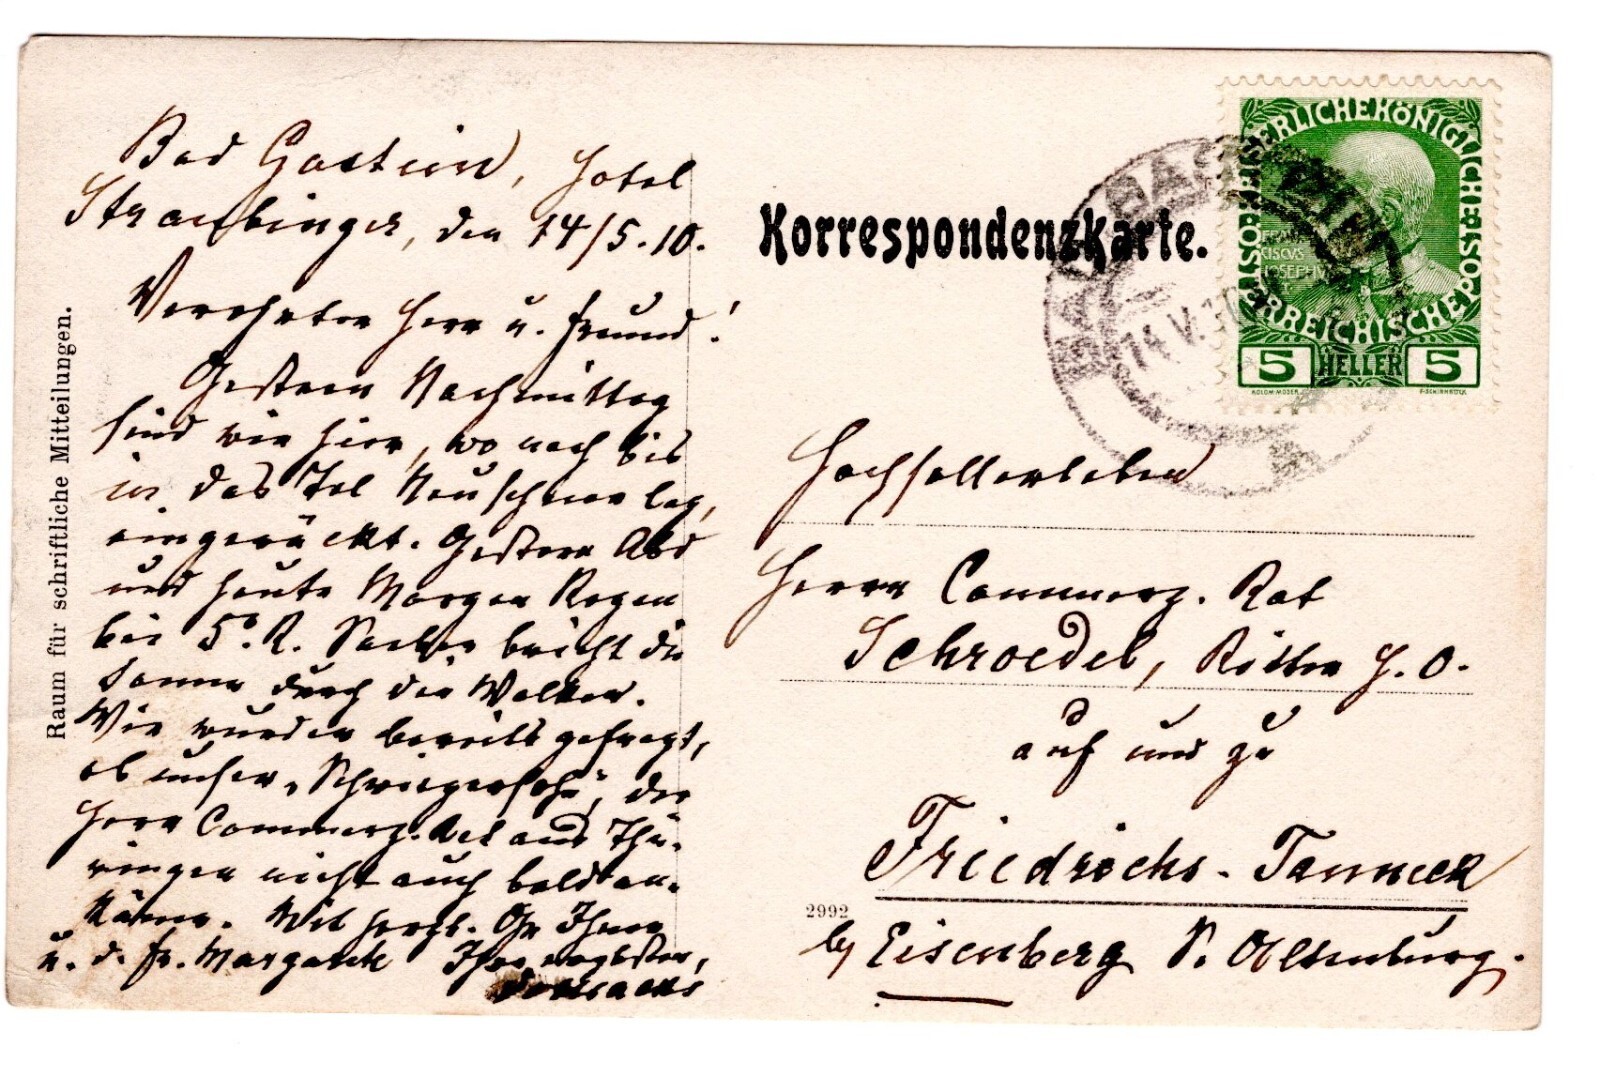 Bad Gastein, Hotel
Straubinger, den 14/5.10.
Verehrter Herr u. Freund!
Gestern Nachmittag
sind wir hier, wo noch bis
in das Tal Neuschnee lag,
eingerückt. Gestern Abd
und heute Morgen Regen
bei 5° R. Soeben bricht die
Sonne durch die Wolken.
Wir wurden bereits gefragt,
ob unser „Schwiegersohn", der
Herr Commerz. Rat aus Thü-
ringen nicht auch bald an-
käme. Mit herzl. Gr Ihnen
u. d. Fr. Margareth Ihre ergebsten,
Raum für schriftliche Mitteilungen.
Korrespondenzkarte.
KAISERLICHEKÖNIGLICHE
ÖSTERREICHISCHEPOST
FRAN
CISCVS
JOSEPHVS
5 HELLER 5
14.V.10
Hochselleriebben
Herrn Commerz. Rat
Schroedel, Ritter H. O.
auf und zu
Friedrichs-Tanneck
by Eisenberg S. Altenburg.
2992